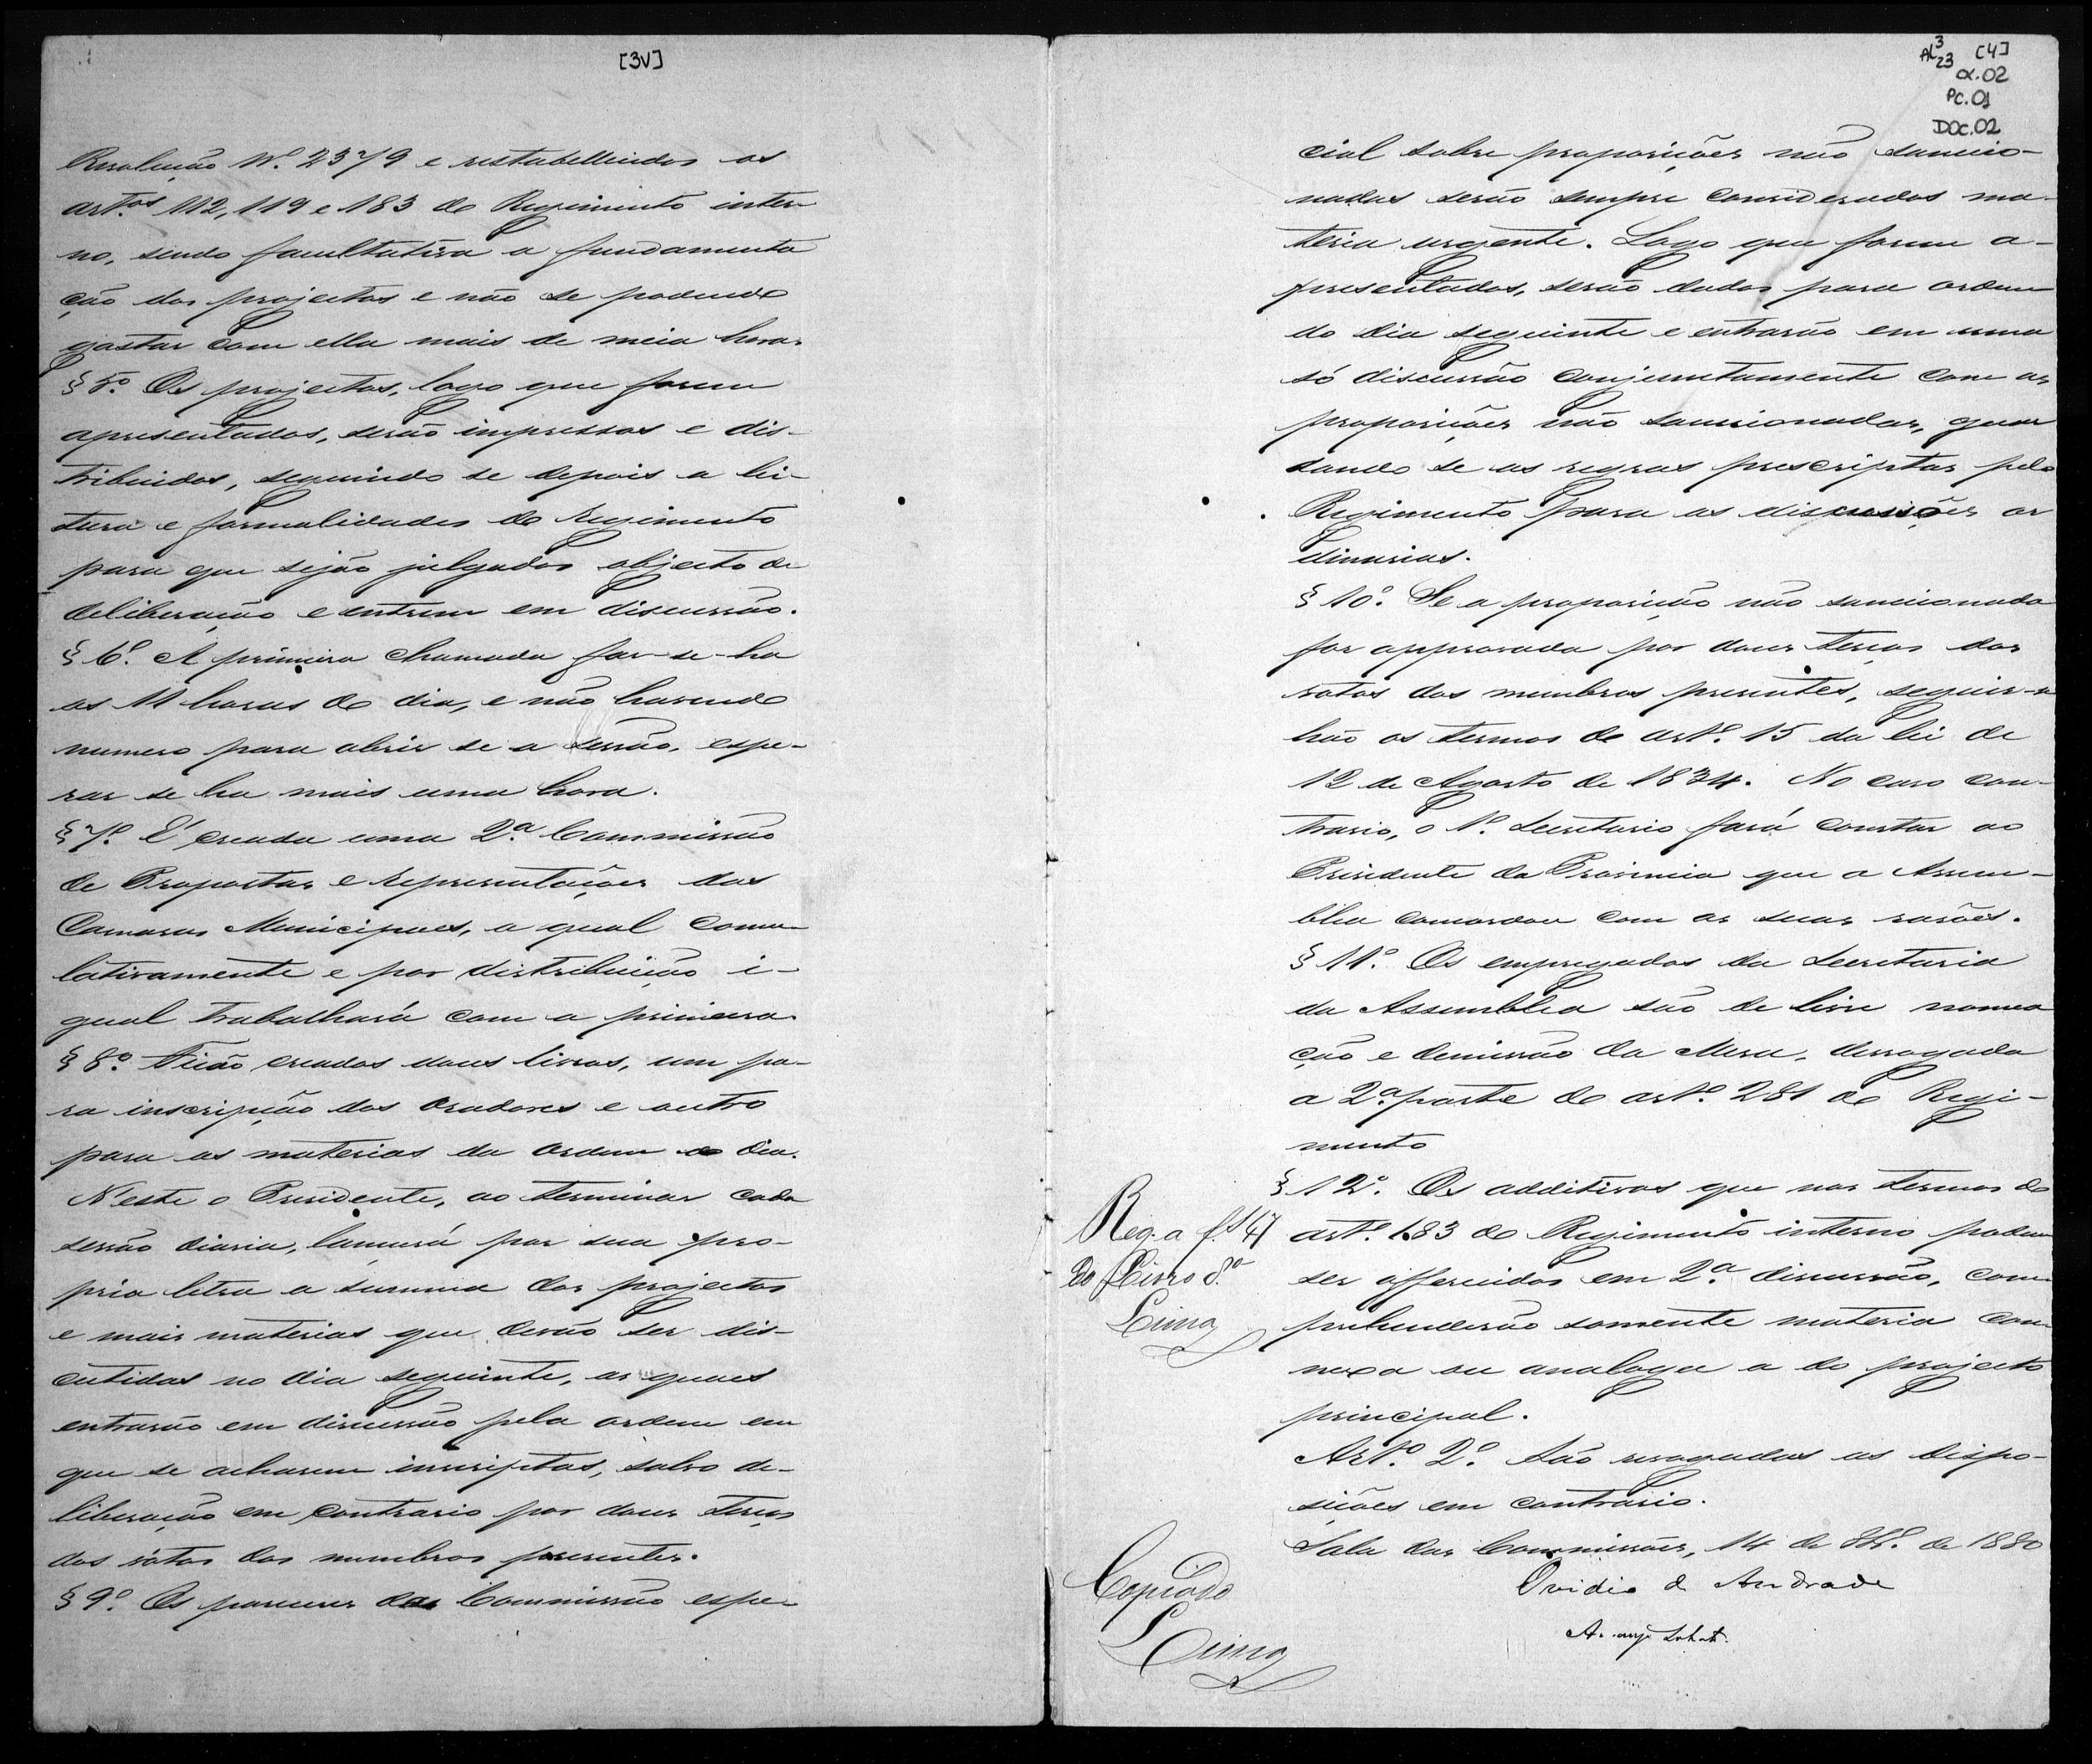 [3V]
Resolução Nº. 2379 e restabellecidos os
art.os 112, 119 e 183 do Regimento inter-
no, sendo facultativa a fundamenta
ção dos projectos e não se podendo
gastar com ella mais de meia hora.
§ 5º. Os projectos, logo que forem
apresentados, serão impressos e dis-
tribuidos, seguindo se depois a lei-
tura e formalidades do Regimento
para que sejão julgados objecto de
deliberação e entrem em discussão.
§ 6º. A primeira chamada far-se-ha
as 11 horas do dia, e não havendo
numero para abrir se a sessão, espe-
rar se ha mais uma hora.
§ 7º. E' creada uma 2.ª Commissão
de Propostas e representações das
Camaras Municipaes, a qual comu-
lativamente e por distribuição i-
gual trabalhará com a primeira.
§ 8º. Ficão creados dous livros, um pa-
ra inscripção dos Oradores e outro
para as materias da Ordem do Dia.
N'este o Presidente, ao terminar cada
sessão diaria, lançará por sua pro-
pria letra a summa dos projectos
e mais materias que devão ser dis-
cutidas no dia seguinte, as quaes
entrarão em discussão pela ordem em
que se acharem inscriptas, salvo de-
liberação em contrario por dous terços
dos vótos dos membros presentes.
§ 9º. Os pareceres das Commissão espe-
AL3 23 [4]
cx.02
Pc.01
DOC.02
cial sobre proposições não sanccio-
nadas serão sempre considerados ma-
teria urgente. Logo que forem a-
presentados, serão dados para ordem
do dia seguinte e entrarão em uma
só discussão conjunctamente com as
proposições não sanccionadas, guar
dando se as regras prescriptas pelo
Regimento para as discussões or
dinarias.
§ 10º. Se a proposição não sanccionada
for approvada por dous terços dos
votos dos membros presentes, seguir-se
hão os termos do artº. 15 da lei de
12 de Agosto de 1834. No caso con-
trario, o 1º. Secretario fará constar ao
Presidente da Provincia que a Assem-
bléa concordou com as suas rasões.
§ 11º. Os empregados da Secretaria
da Assembléa são de livre nomea
ção e demissão da Mesa, derrogada
a 2.ª parte do artº. 281 do Regi-
mento
§ 12º. Os additivos que nos termos do
artº. 183 do Regimento interno podem
ser offerecidos em 2.ª discussão, com-
prehenderão somente materia con-
nexa ou analoga a do projecto
principal.
Artº. 2º. São revogadas as dispo-
sições em contrario.
Sala das Commissões, 14 de 8bº. de 1880
Ovidio d Andrade
Reg. a fls 47
Do Livro 8.º
Lima
Copiado
Lima